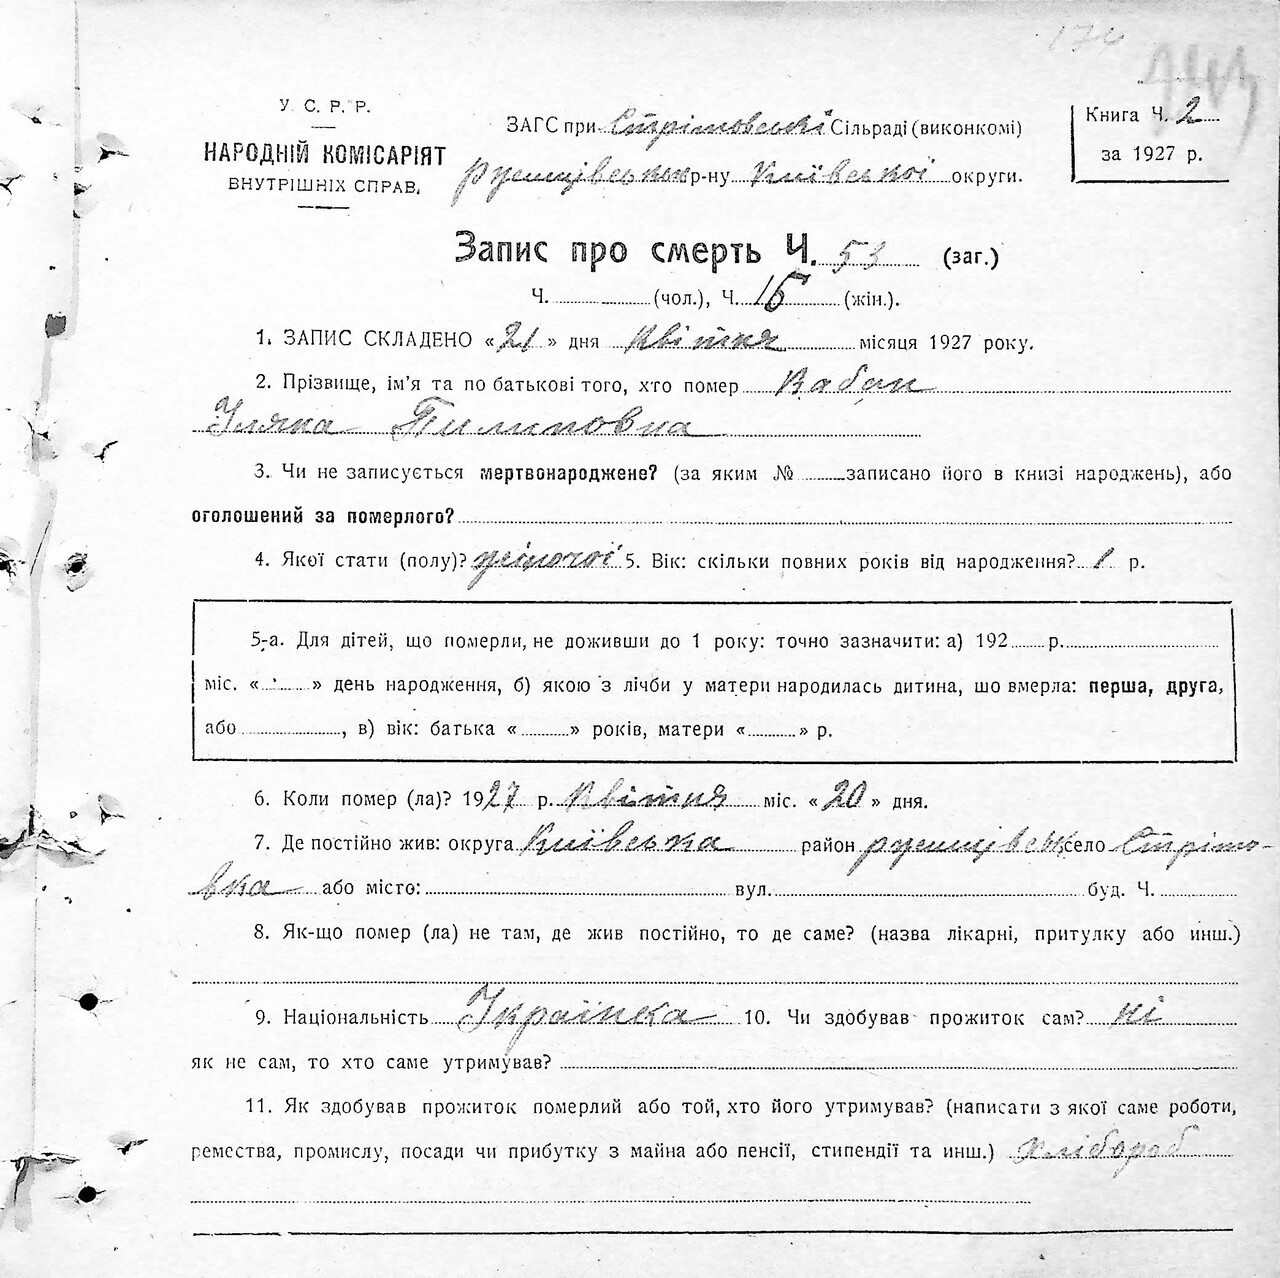 174
У. С. Р. Р.
НАРОДНІЙ КОМІСАРІЯТ
ВНУТРІШНІХ СПРАВ.
ЗАГС при Стрітовські Сільраді (виконкомі)
р-ну Київської округи.
Книга Ч. 2
за 1927 р.
Запис про смерть Ч. 53 (заг.)
Ч. (чол.), Ч. 15 (жін.).
1. ЗАПИС СКЛАДЕНО «21» дня Квітня місяця 1927 року.
2. Прізвище, ім'я та по батькові того, хто помер
Пилиповна
3. Чи не записується мертвонароджене? (за яким № записано його в книзі народжень), або
оголошений за померлого?
4. Якої стати (полу)? жіночої 5. Вік: скільки повних років від народження? 1 р.
5-а. Для дітей, що померли, не доживши до 1 року: точно зазначити: а) 192 р.
міс. « » день народження, б) якою з лічби у матери народилась дитина, шо вмерла: перша, друга,
або , в) вік: батька « » років, матери « » р.
6. Коли помер (ла)? 1927 р. Квітня міс. «20» дня.
7. Де постійно жив: округа Київська район село Стріто-
вка або місто: вул. буд. Ч.
8. Як-що помер (ла) не там, де жив постійно, то де саме? (назва лікарні, притулку або инш.)
9. Національність Українка 10. Чи здобував прожиток сам? ні
як не сам, то хто саме утримував?
11. Як здобував прожиток померлий або той, хто його утримував? (написати з якої саме роботи,
ремества, промислу, посади чи прибутку з майна або пенсії, стипендії та инш.) хлібороб